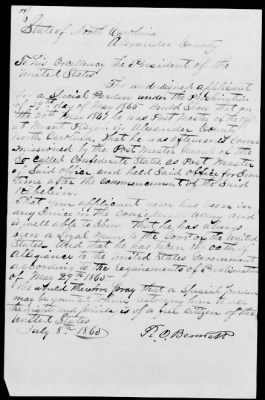 State of North Carolina
Alexander County
To His Excellency the President of the
United States
The undersigned applicant
for a Special Pardon under the Proclamation
of 29th day of May 1865 would Show that on
the 20th 1861 he was Post Master of the
at Mount Pisgah in Alexander County
North Carolina, that he was afterward Com
missioned by the Post Master General of the
So called Confederate States as Post Master
of Said office and held Said office for Some
time after the Commencement of the Said
Rebellion
That your applicant never has been in
any Service in the Confederate army and
is well able to Show that he has always
been a loyal to the United
States. And that he has taken the oath of
Allegiance to the United States Government
according to the requirements of Proclamation
of May 29th 1865
He would therefore pray that a Special Pardon
may be granted him restoring him to all
the rights and privileges of a free Citizen of the
United States
July 8th 1865
Bennett